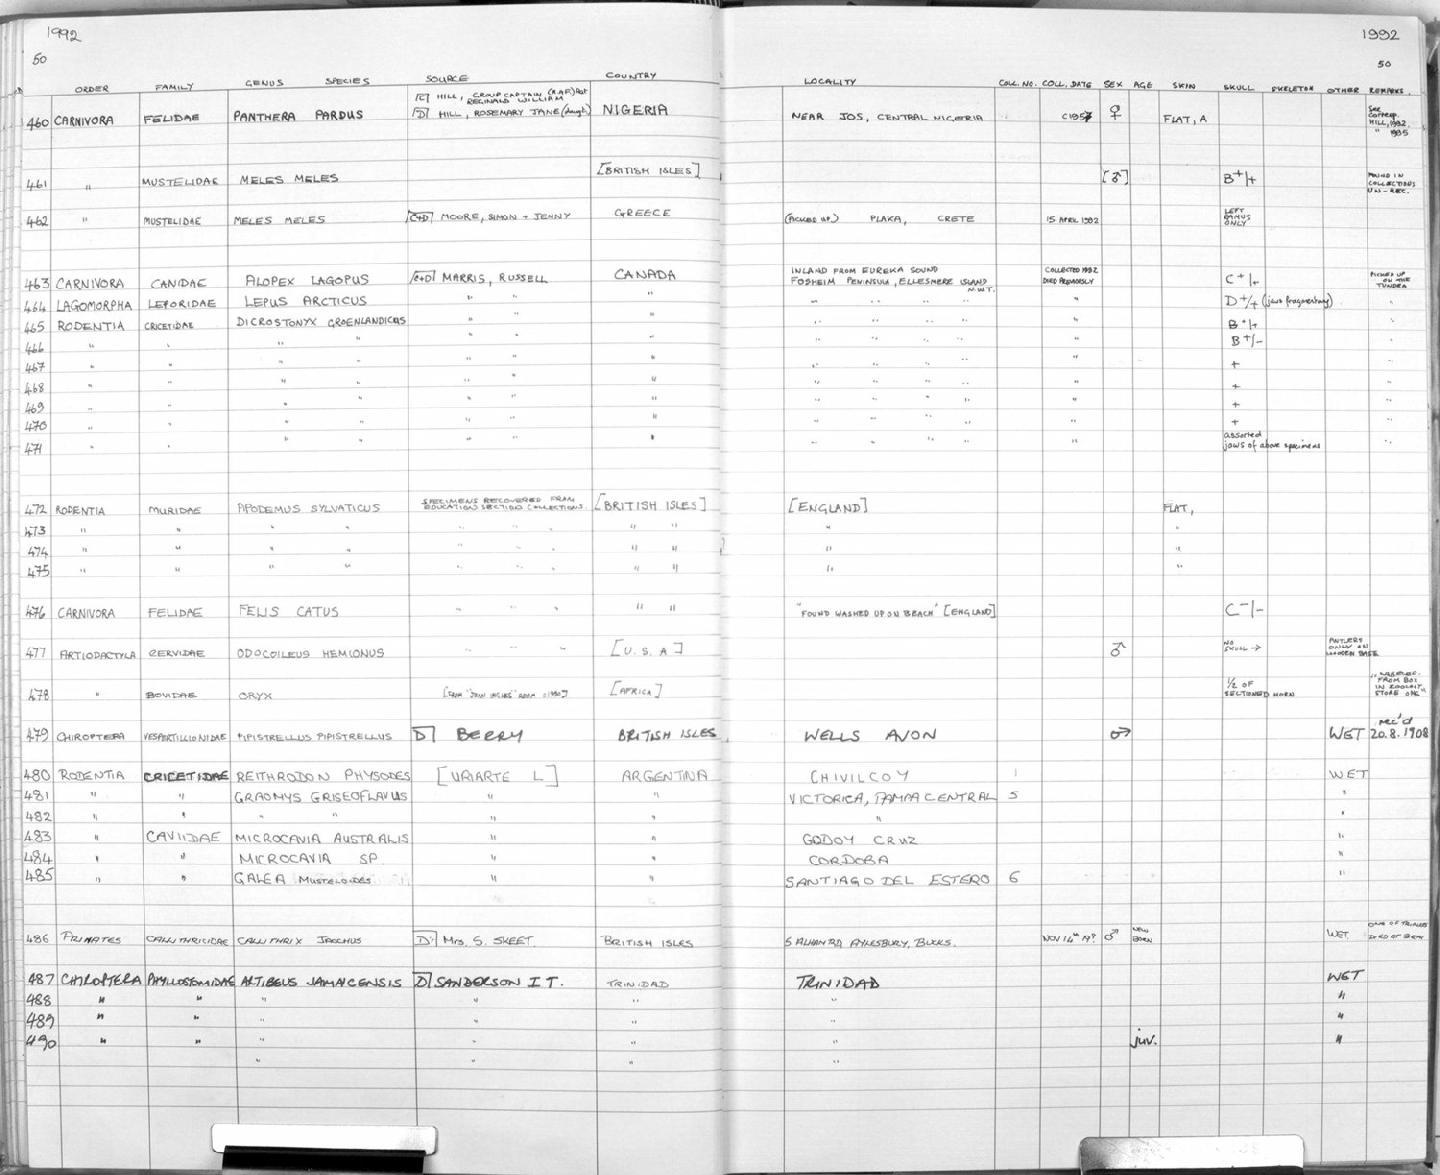 1992 1992
50 50
ORDER FAMILY GENUS SPECIES SOURCE COUNTRY LOCALITY COLL. NO. COLL. DATE SEX AGE SKIN SKULL SKELETON OTHER REMARKS.
[C] HILL, GROUP CAPTAIN (R.A.F.) Ret REGINALD WILLIAM
460 CARNIVORA FELIDAE PANTHERA PARDUS [D] HILL, ROSEMARY JANE (daugh) NIGERIA NEAR JOS, CENTRAL NIGERIA C1957 ♀ FLAT, A See corresp. HILL, 1992 " 1935
461 " MUSTELIDAE MELES MELES [BRITISH ISLES] [♂] B+/+ FOUND IN COLLECTIONS UN-REC.
462 " MUSTELIDAE MELES MELES [C+D] MOORE, SIMON + JENNY GREECE (PICKED UP) PLAKA, CRETE 15 APRIL 1982 LEFT RAMUS ONLY
463 CARNIVORA CANIDAE ALOPEX LAGOPUS [C+D] MARRIS, RUSSELL CANADA INLAND FROM EUREKA SOUND FOSHEIM PENINSULA, ELLESMERE ISLAND N.W.T. COLLECTED 1992 DIED PREVIOUSLY C+/+ PICKED UP ON THE TUNDRA
464 LAGOMORPHA LEPORIDAE LEPUS ARCTICUS " " " " " " " " D+/+ (jaws fragmentary) "
465 RODENTIA CRICETIDAE DICROSTONYX GROENLANDICUS " " " " " " " " B+/+ "
466 " " " " " " " " " " " " B+/- "
467 " " " " " " " " " " " " + "
468 " " " " " " " " " " " " + "
469 " " " " " " " " " " " " + "
470 " " " " " " " " " " " " + "
471 " " " " " " " " " " " " assorted jaws of above specimens "
472 RODENTIA MURIDAE APODEMUS SYLVATICUS SPECIMENS RECOVERED FROM EDUCATION SECTION COLLECTIONS. [BRITISH ISLES] [ENGLAND] FLAT,
473 " " " " " " " " " " "
474 " " " " " " " " " " "
475 " " " " " " " " " " "
476 CARNIVORA FELIDAE FELIS CATUS " " " " " "FOUND WASHED UP ON BEACH" [ENGLAND] C-/-
477 ARTIODACTYLA CERVIDAE ODOCOILEUS HEMIONUS " " " [U.S.A] ♂ NO SKULL → ANTLERS ONLY ON WOODEN BASE
478 " BOVIDAE ORYX [AFRICA] 1/2 OF SECTIONED HORN FROM BOX IN STORE
479 CHIROPTERA VESPERTILLIONIDAE PIPISTRELLUS PIPISTRELLUS [D] BERRY BRITISH ISLES WELLS AVON ♂ WET rec'd 20.8.1908
480 RODENTIA CRICETIDAE REITHRODON PHYSODES [URIARTE L] ARGENTINA CHIVILCOY 1 WET
481 " " GRAOMYS GRISEOFLAVUS " " VICTORICA, PAMPA CENTRAL 5 "
482 " " " " " " " "
483 " CAVIIDAE MICROCAVIA AUSTRALIS " " GODOY CRUZ "
484 " " MICROCAVIA SP " " CORDOBA "
485 " " GALEA MUSTELOIDES " " SANTIAGO DEL ESTERO 6 "
486 PRIMATES CALLITHRICIDAE CALLITHRIX JACCHUS [D] Mrs. S. SKEET. BRITISH ISLES AYLESBURY, BUCKS. NOV 14th 19?? ♂ NEW BORN WET ONE OF TRIPLETS
487 CHIROPTERA PHYLLOSTOMIDAE ARTIBEUS JAMAICENSIS [D] SANDERSON I T. TRINIDAD TRINIDAD WET
488 " " " " " " "
489 " " " " " " "
490 " " " " " " juv. "
" " " "